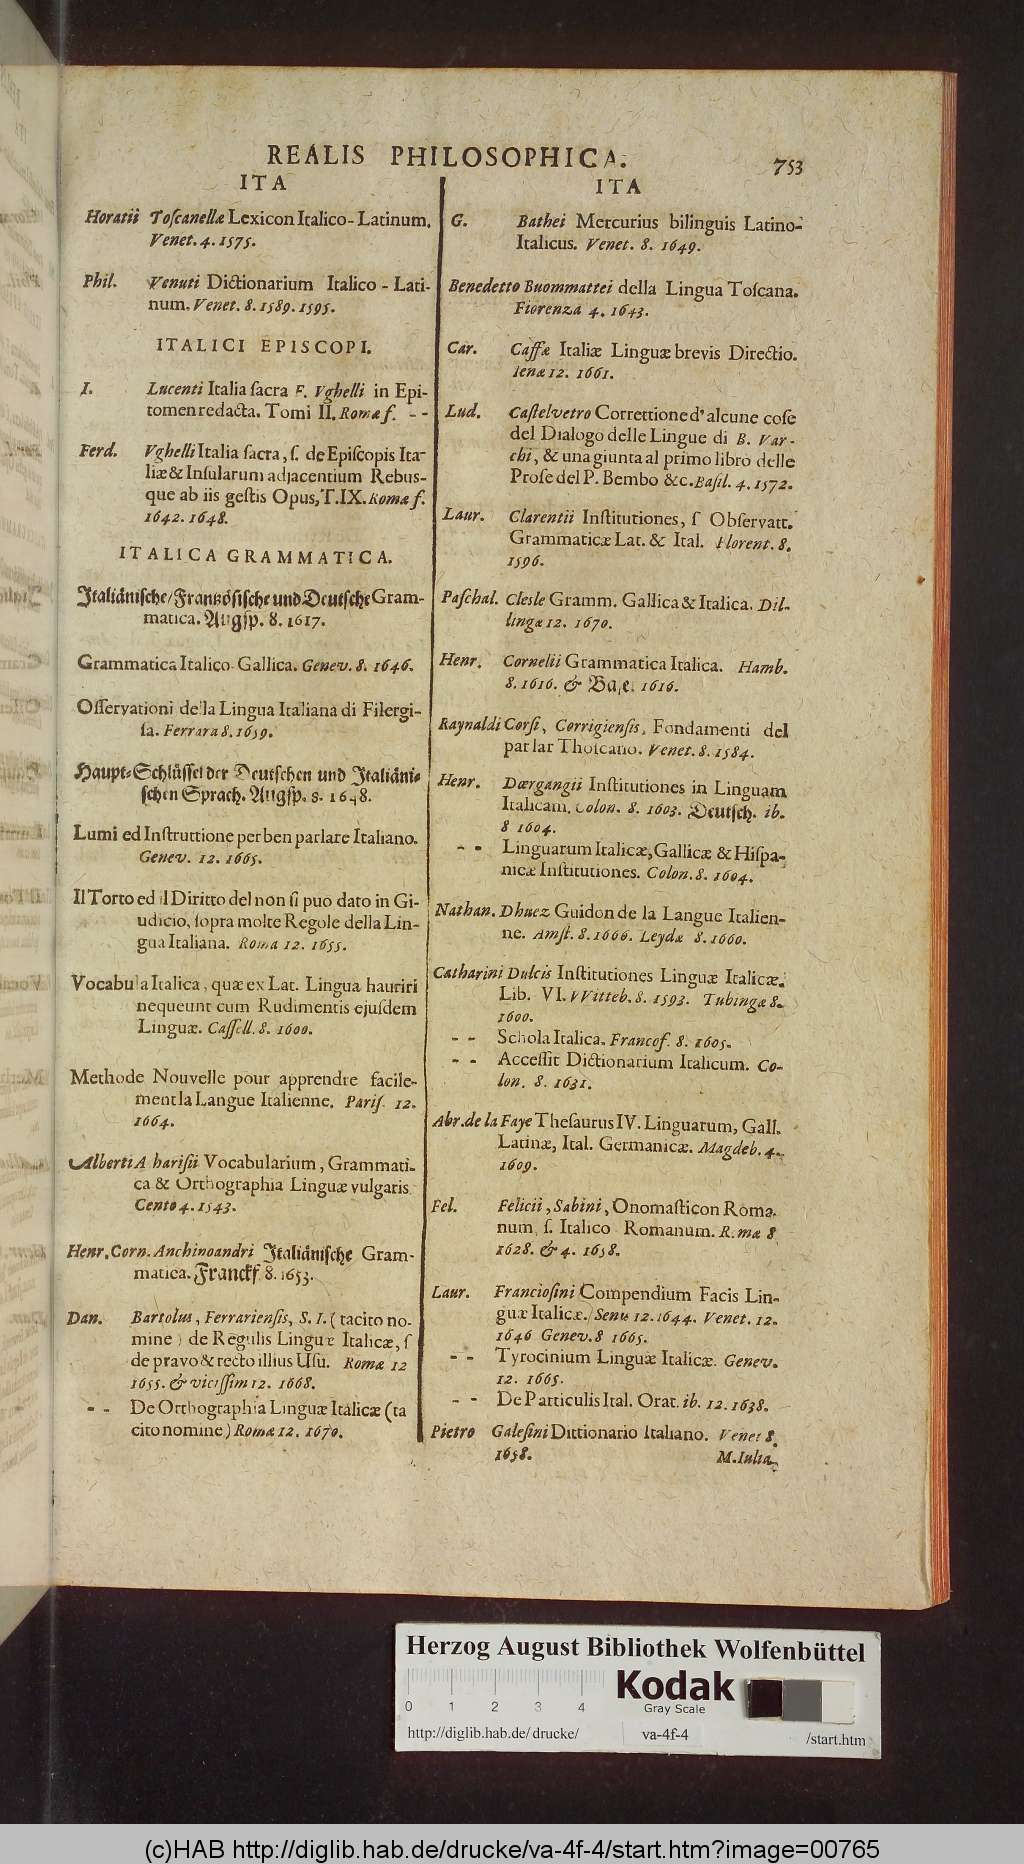 REALIS PHILOSOPHICA.
753
ITA
Horatii Toſcanellæ Lexicon Italico-Latinum.
Venet. 4. 1575.
Phil. Venuti Dictionarium Italico-Lati-
num. Venet. 8. 1589. 1595.
ITALICI EPISCOPI.
I. Lucenti Italia ſacra F. Vghelli in Epi-
tomen redacta. Tomi II. Romæ f. - -
Ferd. Vghelli Italia ſacra, ſ. de Epiſcopis Ita-
liæ & Inſularum adjacentium Rebus-
que ab iis geſtis Opus, T. IX. Romæ f.
1642. 1648.
ITALICA GRAMMATICA.
Italiäniſche/Frantzöſiſche und Deutſche Gram-
matica. Augſp. 8. 1617.
Grammatica Italico-Gallica. Genev. 8. 1646.
Oſſervationi della Lingua Italiana di Filergi-
ta. Ferrara 8. 1659.
Haupt-Schlüſſel der Deutſchen und Italiäni-
ſchen Sprach. Augſp. 8. 1648.
Lumi ed Inſtruttione per ben parlare Italiano.
Genev. 12. 1665.
Il Torto ed il Diritto del non ſi puo dato in Gi-
udicio, ſopra molte Regole della Lin-
gua Italiana. Roma 12. 1655.
Vocabula Italica, quæ ex Lat. Lingua hauriri
nequeunt cum Rudimentis ejuſdem
Linguæ. Caſſell. 8. 1600.
Methode Nouvelle pour apprendre facile-
ment la Langue Italienne. Pariſ. 12.
1664.
Alberti A hariſii Vocabularium, Grammati-
ca & Orthographia Linguæ vulgaris
Cento 4. 1543.
Henr. Corn. Anchinoandri Italiäniſche Gram-
matica. Franckf 8. 1653.
Dan. Bartolus, Ferrarienſis, S. I. (tacito no-
mine) de Regulis Linguæ Italicæ, ſ
de pravo & recto illius Uſu. Romæ 12
1655. & viciſſim 12. 1668.
- - De Orthographia Linguæ Italicæ (ta
cito nomine) Romæ 12. 1670.
ITA
G. Bathei Mercurius bilinguis Latino-
Italicus. Venet. 8. 1649.
Benedetto Buommattei della Lingua Toſcana.
Fiorenza 4. 1643.
Car. Caffæ Italiæ Linguæ brevis Directio.
Ienæ 12. 1661.
Lud. Caſtelvetro Correttione d'alcune coſe
del Dialogo delle Lingue di B. Var-
chi, & una giunta al primo libro delle
Proſe del P. Bembo &c. Baſil. 4. 1572.
Laur. Clarentii Inſtitutiones, ſ Obſervatt.
Grammaticæ Lat. & Ital. Florent. 8.
1596.
Paſchal. Cleſle Gramm. Gallica & Italica. Dil-
lingæ 12. 1670.
Henr. Cornelii Grammatica Italica. Hamb.
8. 1616. & Baſe. 1616.
Raynaldi Corſi, Corrigienſis, Fondamenti del
parlar Thoſcano. Venet. 8. 1584.
Henr. Dœrgangii Inſtitutiones in Linguam
Italicam. Colon. 8. 1603. Deutſch. ib.
8 1604.
- - Linguarum Italicæ, Gallicæ & Hiſpa-
nicæ Inſtitutiones. Colon. 8. 1604.
Nathan. Dhuez Guidon de la Langue Italien-
ne. Amſt. 8. 1666. Leydæ 8. 1660.
Catharini Dulcis Inſtitutiones Linguæ Italicæ.
Lib. VI. VVitteb. 8. 1593. Tubingæ 8.
1600.
- - Schola Italica. Francof. 8. 1605.
- - Acceſſit Dictionarium Italicum. Co-
lon. 8. 1631.
Abr. de la Faye Theſaurus IV. Linguarum, Gall.
Latinæ, Ital. Germanicæ. Magdeb. 4.
1609.
Fel. Felicii, Sabini, Onomaſticon Roma-
num, ſ. Italico Romanum. R.mæ 8
1628. & 4. 1658.
Laur. Francioſini Compendium Facis Lin-
guæ Italicæ. Senis 12. 1644. Venet. 12.
1646 Genev. 8 1665.
- - Tyrocinium Linguæ Italicæ. Genev.
12. 1665.
- - De Particulis Ital. Orat. ib. 12. 1638.
Pietro Galeſini Dittionario Italiano. Venet 8.
1658.
M. Iulia
Herzog August Bibliothek Wolfenbüttel
0 1 2 3 4
Kodak
Gray Scale
http://diglib.hab.de/drucke/ va-4f-4 /start.htm
(c)HAB http://diglib.hab.de/drucke/va-4f-4/start.htm?image=00765